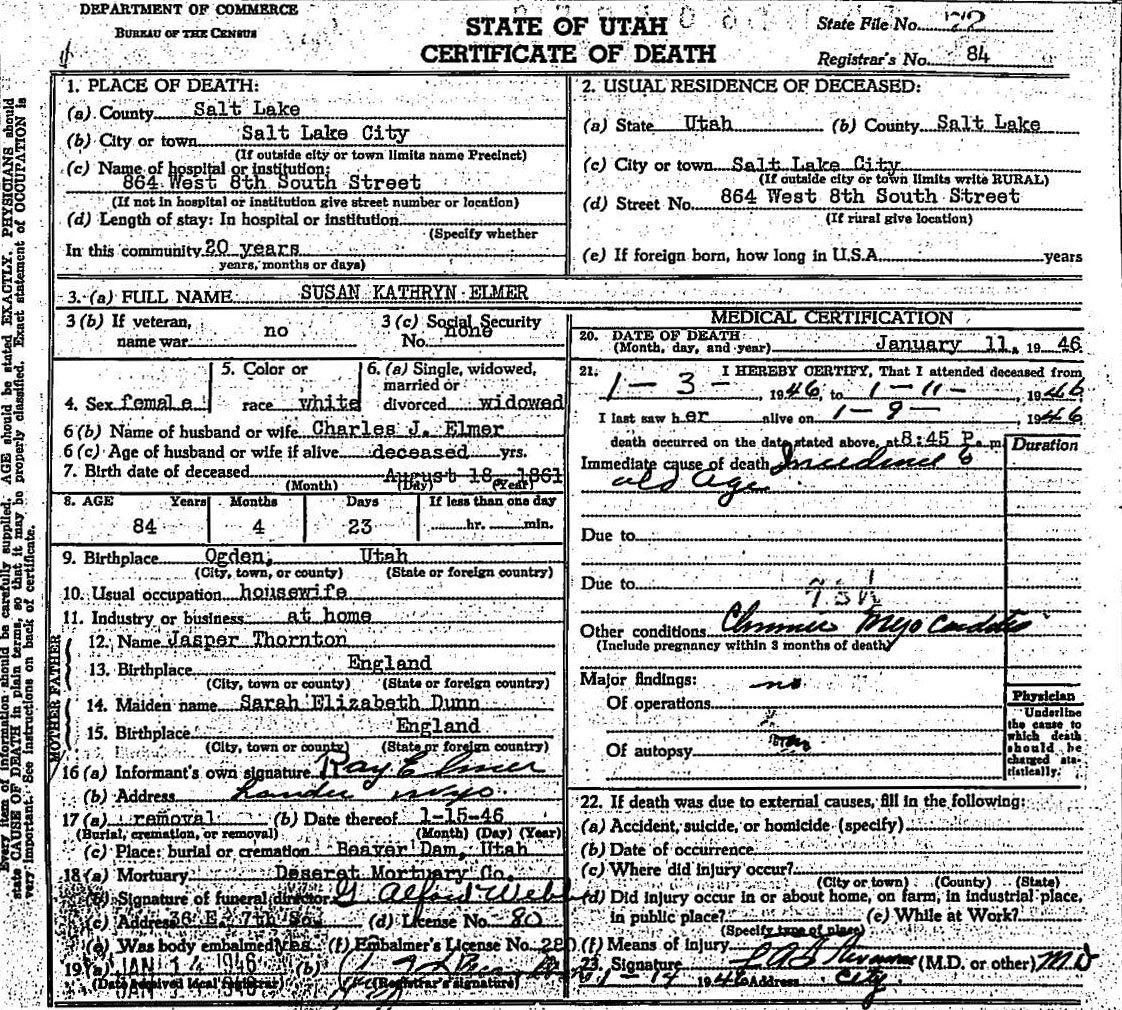 DEPARTMENT OF COMMERCE
BUREAU OF THE CENSUS
STATE OF UTAH
CERTIFICATE OF DEATH
State File No.
Registrar's No. 84
Every item of information should be carefully supplied. AGE should be stated EXACTLY. PHYSICIANS should
state CAUSE OF DEATH in plain terms, so that it may be properly classified. Exact statement of OCCUPATION is
very important. See instructions on back of certificate.
1. PLACE OF DEATH:
(a) County Salt Lake
(b) City or town Salt Lake City
(If outside city or town limits name Precinct)
(c) Name of hospital or institution:
864 West 8th South Street
(If not in hospital or institution give street number or location)
(d) Length of stay: In hospital or institution
(Specify whether
In this community 20 years
years, months or days)
2. USUAL RESIDENCE OF DECEASED:
(a) State Utah (b) County Salt Lake
(c) City or town Salt Lake City
(If outside city or town limits write RURAL)
(d) Street No. 864 West 8th South Street
(If rural give location)
(e) If foreign born, how long in U.S.A. years
3. (a) FULL NAME SUSAN KATHRYN ELMER
3 (b) If veteran,
name war no
3 (c) Social Security
No. none
4. Sex female
5. Color or
race white
6. (a) Single, widowed,
married or
divorced widowed
6 (b) Name of husband or wife Charles J. Elmer
6 (c) Age of husband or wife if alive deceased yrs.
7. Birth date of deceased August 18, 1861
(Month) (Day) (Year)
8. AGE Years Months Days If less than one day
84 4 23 hr. min.
9. Birthplace Ogden, Utah
(City, town, or county) (State or foreign country)
10. Usual occupation housewife
11. Industry or business at home
FATHER
12. Name Jasper Thornton
13. Birthplace England
(City, town or county) (State or foreign country)
MOTHER
14. Maiden name Sarah Elizabeth Dunn
15. Birthplace England
(City, town or county) (State or foreign country)
16 (a) Informant's own signature Ray Elmer
(b) Address Lander Wyo.
17 (a) removal (b) Date thereof 1-15-46
(Burial, cremation, or removal) (Month) (Day) (Year)
(c) Place: burial or cremation Beaver Dam, Utah
18 (a) Mortuary Deseret Mortuary Co.
(b) Signature of funeral director G Alford Webb
(c) Address 36 E. 7th So. (d) License No. 80
(e) Was body embalmed? Yes (f) Embalmer's License No. 280
19 (a) JAN 14 1946 (b)
(Date received local registrar) (Registrar's signature)
MEDICAL CERTIFICATION
20. DATE OF DEATH
(Month, day, and year) January 11, 1946
21. I HEREBY CERTIFY, That I attended deceased from
1-3-, 1946, to 1-11-, 1946
I last saw her alive on 1-9-, 1946
death occurred on the date stated above, at 8:45 P. m.
Duration
Immediate cause of death
old age
Due to
Due to
Other conditions Chronic Myocarditis
(Include pregnancy within 3 months of death)
Major findings: no
Of operations
Of autopsy
Physician
Underline
the cause to
which death
should be
charged sta-
tistically.
22. If death was due to external causes, fill in the following:
(a) Accident, suicide, or homicide (specify)
(b) Date of occurrence
(c) Where did injury occur?
(City or town) (County) (State)
(d) Did injury occur in or about home, on farm, in industrial place,
in public place? (e) While at Work?
(Specify type of place)
(f) Means of injury
23. Signature (M.D. or other) MD
1946 Address City